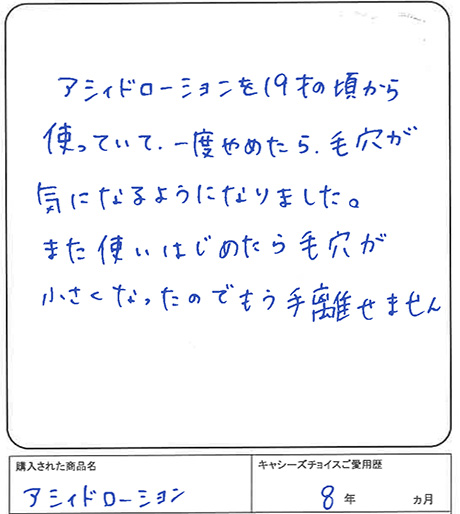 アシィドローションを19才の頃から
使っていて、一度やめたら、毛穴が
気になるようになりました。
また使いはじめたら毛穴が
小さくなったのでもう手離せません
購入された商品名
アシィドローション
キャシーズチョイスご愛用歴
8年 ヵ月